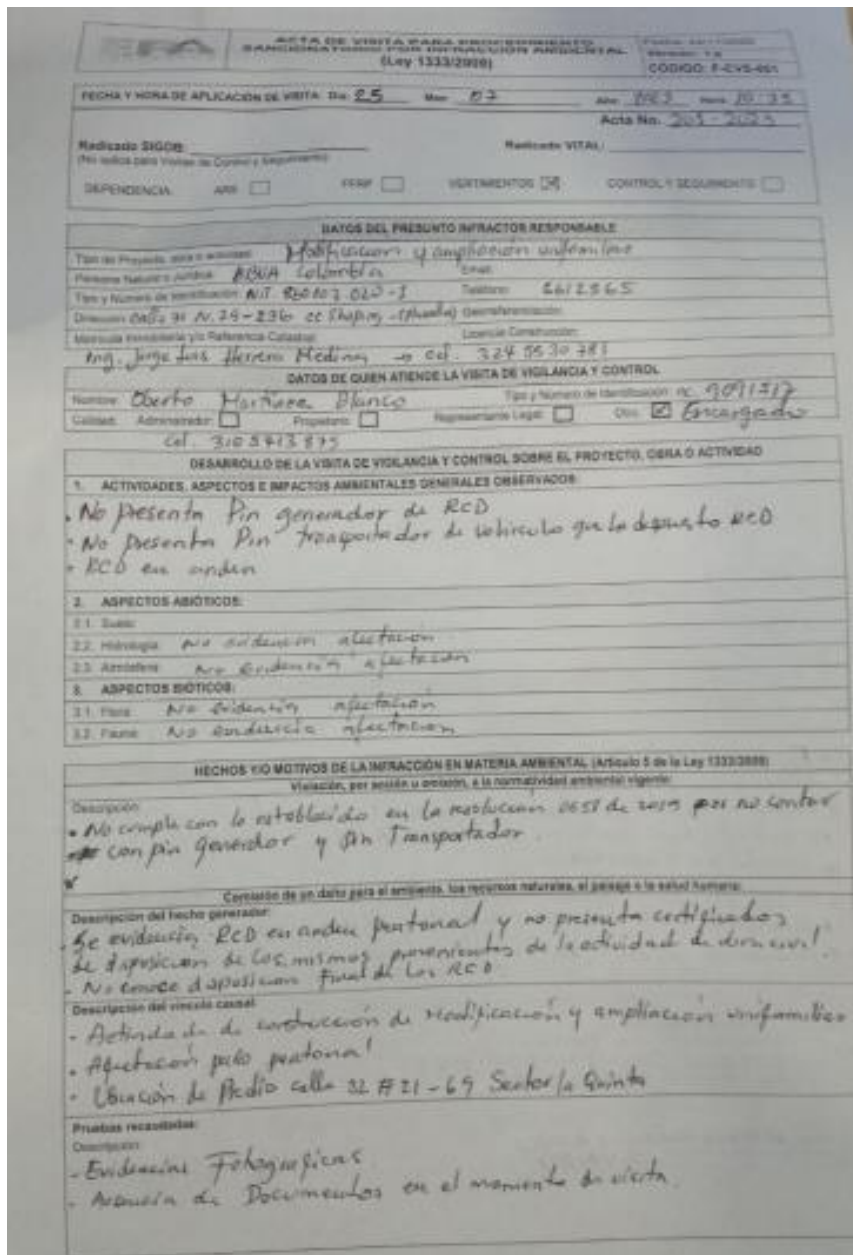 EPA
ACTA DE VISITA PARA PROCEDIMIENTO
SANCIONATORIO POR INFRACCIÓN AMBIENTAL
(Ley 1333/2009)
CÓDIGO: F-CVS-001
FECHA Y HORA DE APLICACIÓN DE VISITA: Dia: 25 Mes: 07 Año: Hora: 10:35
Acta No. 205-2023
Radicado SIGOB: Radicado VITAL:
(No aplica para Visitas de Control y Seguimiento)
DEPENDENCIA: VERTIMIENTOS CONTROL Y SEGUIMIENTO
DATOS DEL PRESUNTO INFRACTOR RESPONSABLE
Tipo de Proyecto, obra o actividad: Modificacion y ampliación unifamiliar
Persona Natural o Jurídica: Colombia Email:
Tipo y Número de Identificación: NIT Teléfono:
Dirección: Georreferenciación:
Matrícula Inmobiliaria y/o Referencia Catastral: Licencia Construcción:
Ing. Jorge Luis Herrera Medina → cel. 324 5530 783
DATOS DE QUIEN ATIENDE LA VISITA DE VIGILANCIA Y CONTROL
Nombre: Oberto Martinez Blanco Tipo y Número de Identificación:
Calidad: Administrador: Propietario: Representante Legal: Otro: Encargado
cel. 3105413875
DESARROLLO DE LA VISITA DE VIGILANCIA Y CONTROL SOBRE EL PROYECTO, OBRA O ACTIVIDAD
1. ACTIVIDADES, ASPECTOS E IMPACTOS AMBIENTALES GENERALES OBSERVADOS:
• No presenta Pin generador de RCD
• No presenta Pin transportador de vehiculo que RCD
• RCD en anden
2. ASPECTOS ABIÓTICOS:
2.1. Suelo:
2.2. Hidrología: No evidencia afectación
2.3. Atmósfera: No evidencia afectación
3. ASPECTOS BIÓTICOS:
3.1. Flora: No evidencia afectación
3.2. Fauna: No evidencia afectacion
HECHOS Y/O MOTIVOS DE LA INFRACCIÓN EN MATERIA AMBIENTAL (Artículo 5 de la Ley 1333/2009)
Violación, por acción u omisión, a la normatividad ambiental vigente:
Descripción:
• No cumple con lo establecido en la resolucion 0658 de 2019 por no contar
con pin generador y pin Transportador.
Comisión de un daño para el ambiente, los recursos naturales, el paisaje o la salud humana:
Descripción del hecho generador:
- Se evidencia RCD en anden peatonal y no presenta certificados
de disposicion de los mismos provenientes de la actividad de obra civil.
- No conoce disposicion final de los RCD
Descripción del vínculo causal:
- Actividad de construcción de Modificación y ampliación unifamiliar
• Afectación paso peatonal
- Ubicación de Predio calle 32 # 21-69 Sector la Quinta
Pruebas recaudadas:
Descripción:
- Evidencias Fotograficas
- Ausencia de Documentos en el momento de visita.